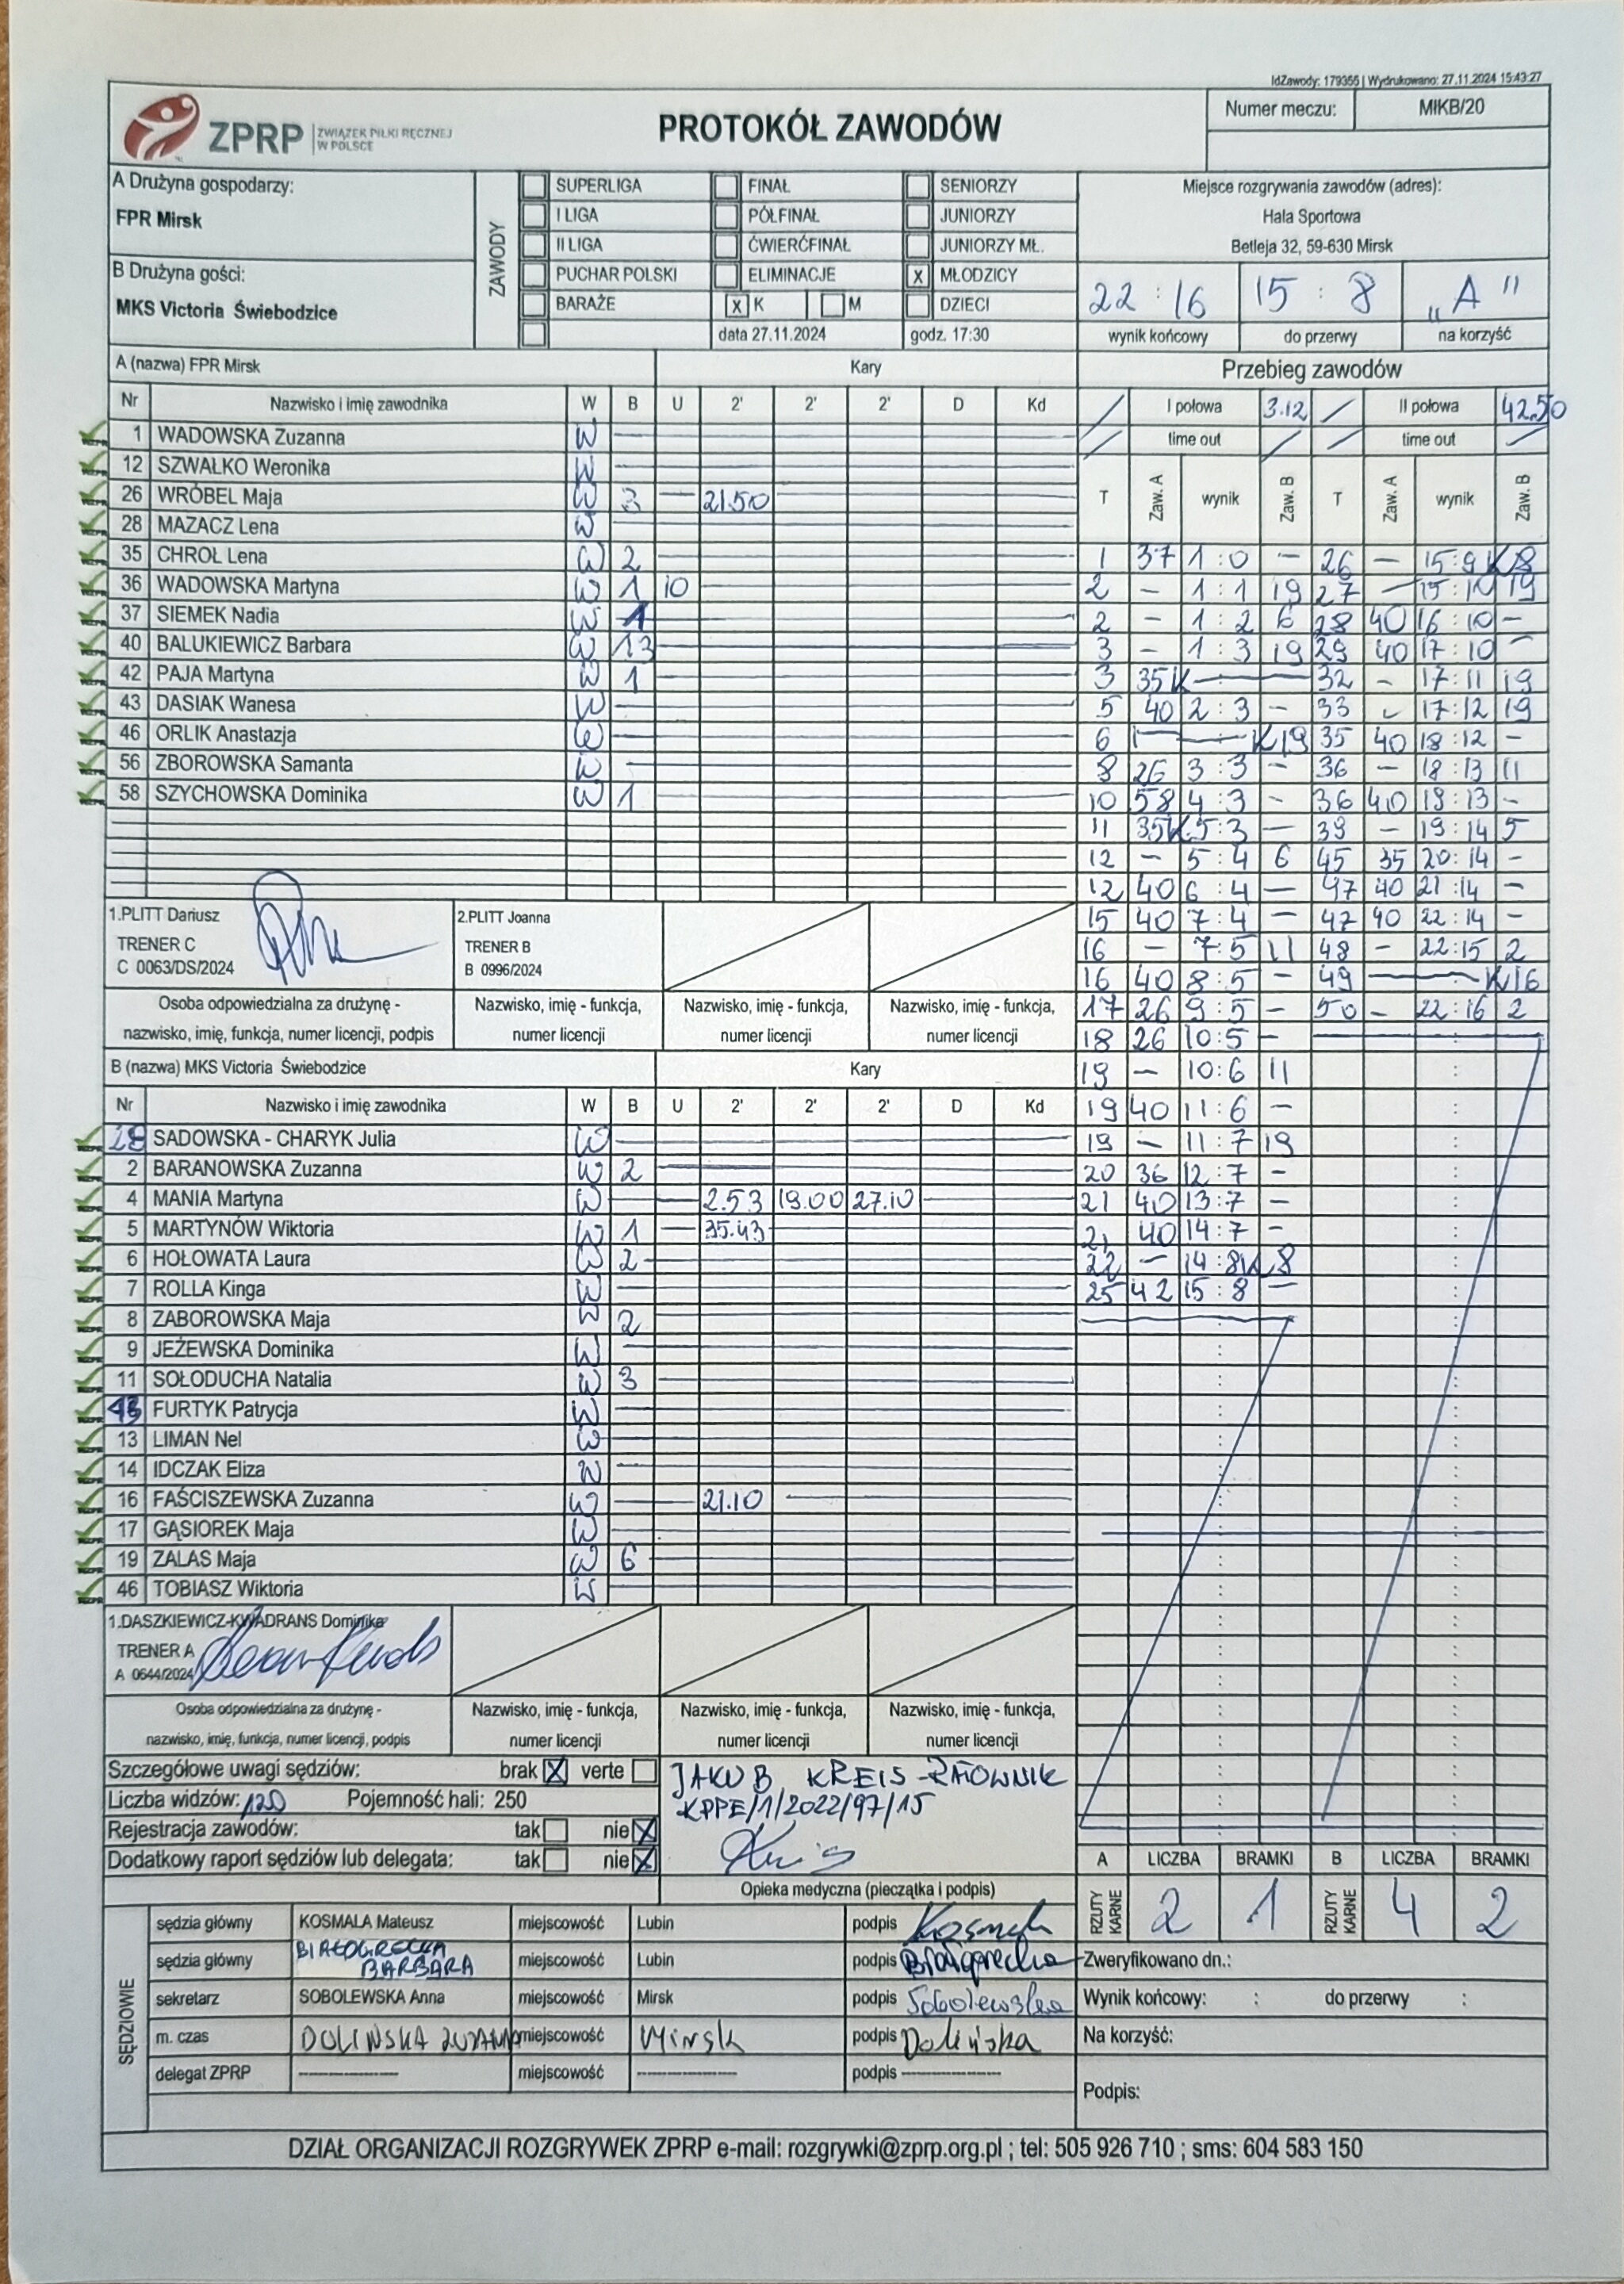 IdZawody: 179355 | Wydrukowano: 27.11.2024 15:43:27
ZPRP ZWIĄZEK PIŁKI RĘCZNEJ
W POLSCE
PROTOKÓŁ ZAWODÓW
Numer meczu: MIKB/20
A Drużyna gospodarzy:
FPR Mirsk
B Drużyna gości:
MKS Victoria Świebodzice
ZAWODY
SUPERLIGA FINAŁ SENIORZY
I LIGA PÓŁFINAŁ JUNIORZY
II LIGA ĆWIERĆFINAŁ JUNIORZY MŁ.
PUCHAR POLSKI ELIMINACJE x MŁODZICY
BARAŻE x K M DZIECI
data 27.11.2024 godz. 17:30
Miejsce rozgrywania zawodów (adres):
Hala Sportowa
Betleja 32, 59-630 Mirsk
22 : 16 15 : 8 „A"
wynik końcowy do przerwy na korzyść
A (nazwa) FPR Mirsk Kary
Nr Nazwisko i imię zawodnika W B U 2' 2' 2' D Kd
1 WADOWSKA Zuzanna W
12 SZWAŁKO Weronika W
26 WRÓBEL Maja W 3 21.50
28 MAZACZ Lena W
35 CHROL Lena W 2
36 WADOWSKA Martyna W 1 10
37 SIEMEK Nadia W 1
40 BALUKIEWICZ Barbara W 13
42 PAJA Martyna W 1
43 DASIAK Wanesa W
46 ORLIK Anastazja W
56 ZBOROWSKA Samanta W
58 SZYCHOWSKA Dominika W 1
1.PLITT Dariusz
TRENER C
C 0063/DS/2024
2.PLITT Joanna
TRENER B
B 0996/2024
Osoba odpowiedzialna za drużynę - Nazwisko, imię - funkcja, Nazwisko, imię - funkcja, Nazwisko, imię - funkcja,
nazwisko, imię, funkcja, numer licencji, podpis numer licencji numer licencji numer licencji
B (nazwa) MKS Victoria Świebodzice Kary
Nr Nazwisko i imię zawodnika W B U 2' 2' 2' D Kd
28 SADOWSKA - CHARYK Julia W
2 BARANOWSKA Zuzanna W 2
4 MANIA Martyna W 2.53 19.00 27.10
5 MARTYNÓW Wiktoria W 1 35.43
6 HOŁOWATA Laura W 2
7 ROLLA Kinga W
8 ZABOROWSKA Maja W 2
9 JEŻEWSKA Dominika W
11 SOŁODUCHA Natalia W 3
FURTYK Patrycja W
13 LIMAN Nel W
14 IDCZAK Eliza W
16 FAŚCISZEWSKA Zuzanna W 21.10
17 GĄSIOREK Maja W
19 ZALAS Maja W 6
46 TOBIASZ Wiktoria W
1.DASZKIEWICZ-KWADRANS Dominika
TRENER A
A 0644/2024
Osoba odpowiedzialna za drużynę - Nazwisko, imię - funkcja, Nazwisko, imię - funkcja, Nazwisko, imię - funkcja,
nazwisko, imię, funkcja, numer licencji, podpis numer licencji numer licencji numer licencji
Przebieg zawodów
I połowa 3.12 II połowa 42.50
time out time out
T Zaw. A wynik Zaw. B T Zaw. A wynik Zaw. B
1 37 1 : 0 – 26 – 15 : 9 K 8
2 – 1 : 1 19 27 – 15 : 10 19
2 – 1 : 2 6 28 40 16 : 10 –
3 – 1 : 3 19 29 40 17 : 10 –
3 35K – 32 – 17 : 11 19
5 40 2 : 3 – 33 – 17 : 12 19
6 – K19 35 40 18 : 12 –
8 26 3 : 3 – 36 – 18 : 13 11
10 58 4 : 3 – 36 40 19 : 13 –
11 35K 5 : 3 – 39 – 19 : 14 5
12 – 5 : 4 6 45 35 20 : 14 –
12 40 6 : 4 – 47 40 21 : 14 –
15 40 7 : 4 – 47 40 22 : 14 –
16 – 7 : 5 11 48 – 22 : 15 2
16 40 8 : 5 – 49 – K16
17 26 9 : 5 – 50 – 22 : 16 2
18 26 10 : 5 –
19 – 10 : 6 11
19 40 11 : 6 –
19 – 11 : 7 19
20 36 12 : 7 –
21 40 13 : 7 –
21 40 14 : 7 –
22 – 14 : 8 K 8
25 42 15 : 8 –
Szczegółowe uwagi sędziów: brak X verte
Liczba widzów: 120 Pojemność hali: 250
Rejestracja zawodów: tak nie X
Dodatkowy raport sędziów lub delegata: tak nie X
JAKUB KREIS - RATOWNIK
KPPE/1/2022/97/15
Opieka medyczna (pieczątka i podpis)
A LICZBA BRAMKI B LICZBA BRAMKI
RZUTY KARNE 2 1 RZUTY KARNE 4 2
SĘDZIOWIE
sędzia główny KOSMALA Mateusz miejscowość Lubin podpis Kosmala
sędzia główny BIAŁOGRECKA BARBARA miejscowość Lubin podpis
sekretarz SOBOLEWSKA Anna miejscowość Mirsk podpis Sobolewska
m. czas DOLIŃSKA ZUZANNA miejscowość Mirsk podpis Dolińska
delegat ZPRP ---------- miejscowość ---------- podpis ----------
Zweryfikowano dn.:
Wynik końcowy: : do przerwy :
Na korzyść:
Podpis:
DZIAŁ ORGANIZACJI ROZGRYWEK ZPRP e-mail: rozgrywki@zprp.org.pl ; tel: 505 926 710 ; sms: 604 583 150